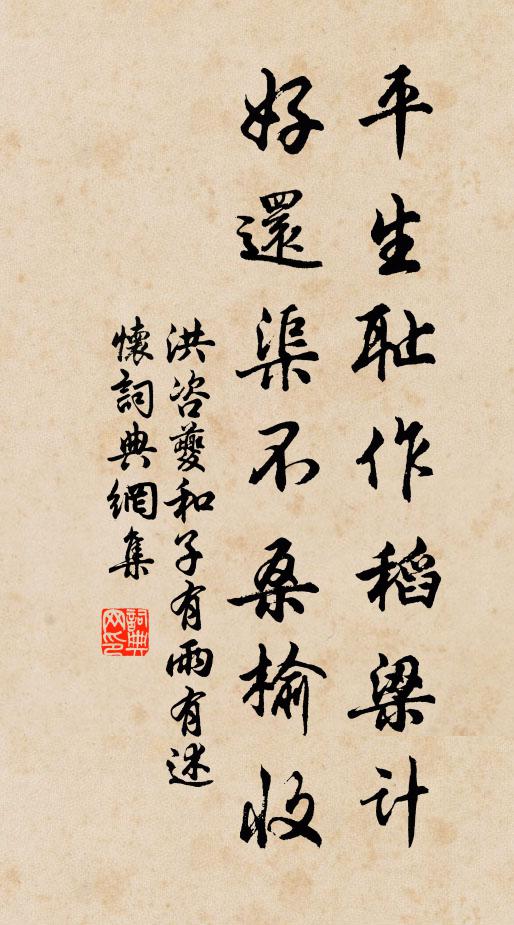 平生耻作稻梁计
好還渠不桑榆收
洪咨夔和子有雨有述
懷詞典網集
詞典网印